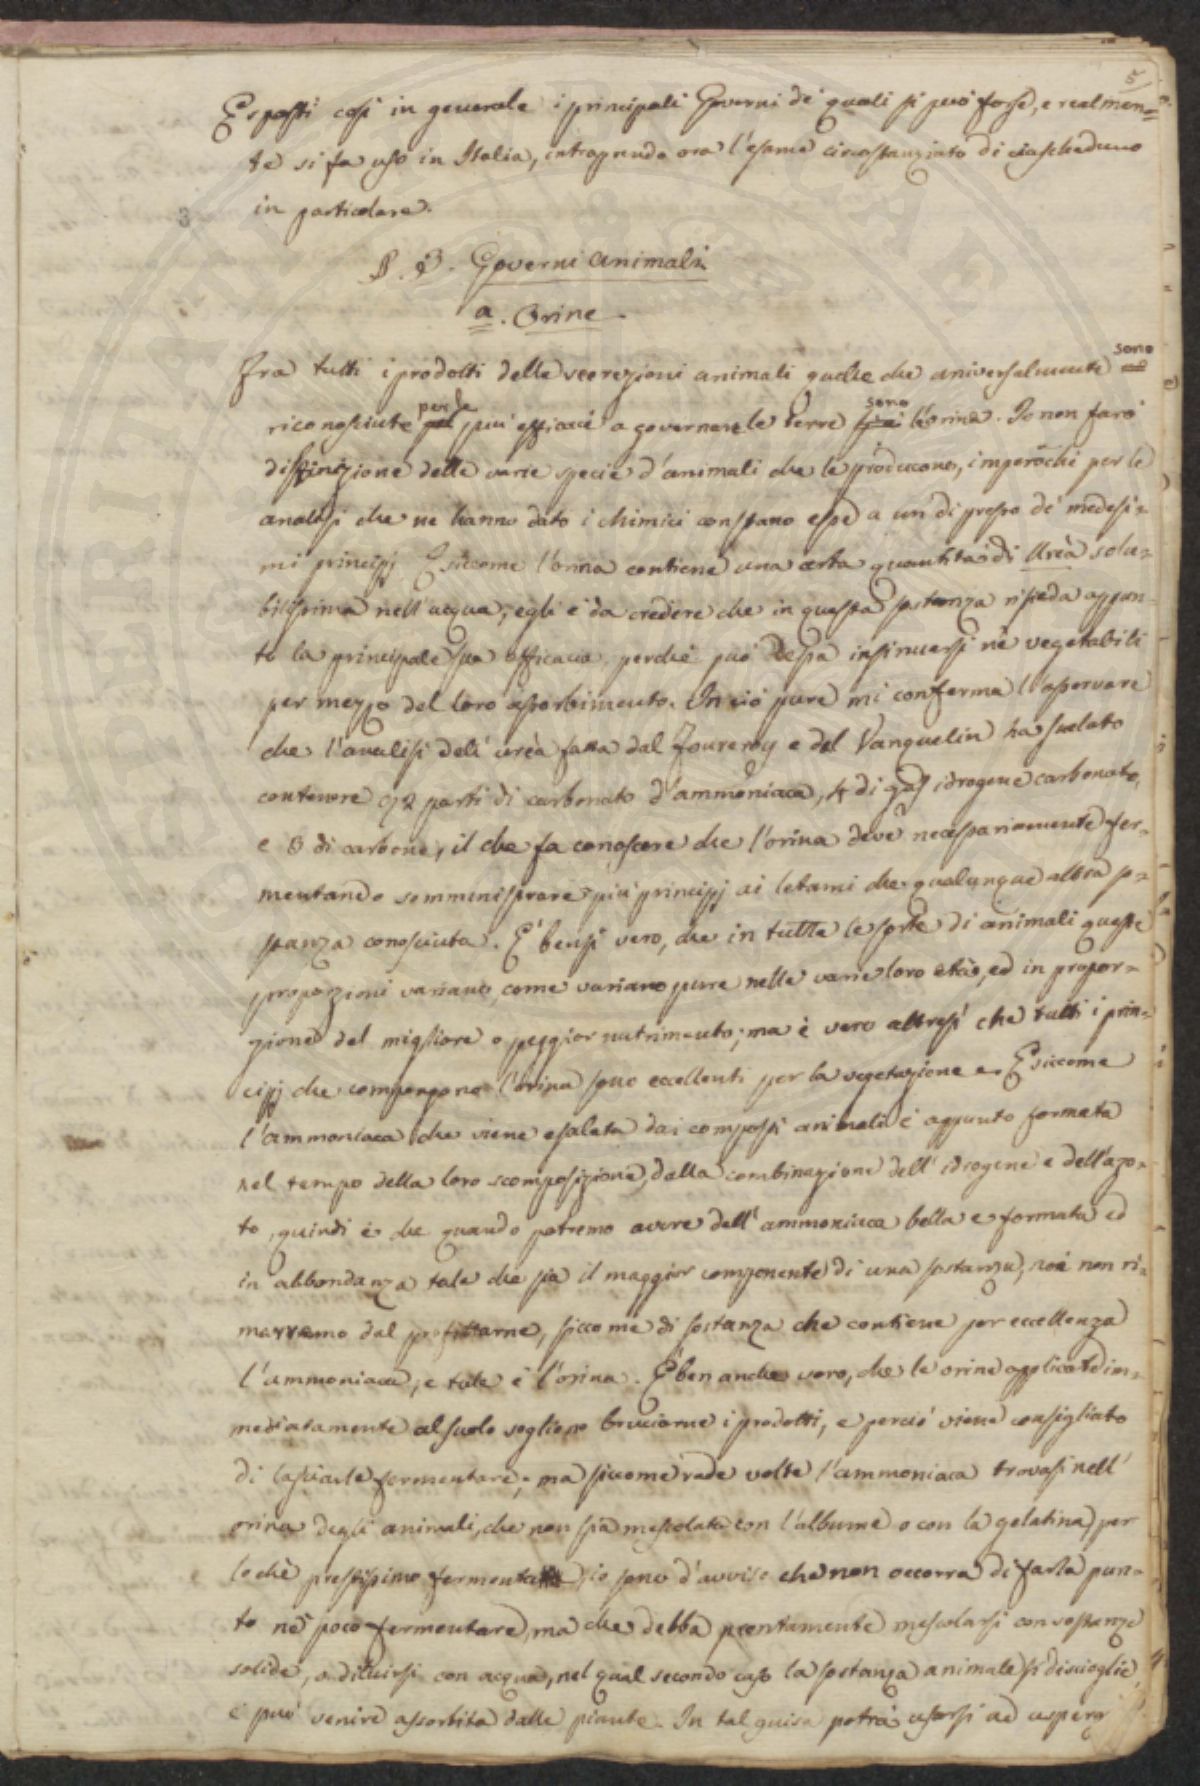 5
Esposti così in generale i principali Governi de' quali si può forse, e realmen=
te si fa uso in Italia, intraprendo ora l'esame circostanziato di ciascheduno
in particolare.
3
§. 3. Governi animali
a. Orine
Fra tutti i prodotti delle secrezioni animali quelle che universalmente sono
riconosciute per le più efficaci a governare le terre sono l'orine. Io non farò
distinzione delle varie specie d'animali che le producono, imperochè per le
analisi che ne hanno dato i chimici constano esse a un di presso de' medesi=
mi principj. E siccome l'orina contiene una certa quantità di Urèa solu=
bilissima nell'acqua, egli è da credere che in questa sostanza risieda appun=
to la principale sua efficacia, perchè può dessa insinuarsi nè vegetabili
per mezzo del loro assorbimento. In ciò pure mi conferma l'osservare
che l'analisi dell'urèa fatta dal Fourcroy e dal Vanquelin ha svelato
contenere 92 parti di carbonato d'ammoniaca, 4 di gas idrogene carbonato,
e 3 di carbone, il che fa conoscere che l'orina deve necessariamente fer=
mentando somministrare più principj ai letami che qualunque altra so=
stanza conosciuta. E' bensì vero, che in tutte le sorte di animali queste
proporzioni variano, come variano pure nelle varie loro età, ed in propor=
zione del migliore o peggior nutrimento; ma è vero altresì che tutti i prin=
cipj che compongono l'orina sono eccellenti per la vegetazione. E siccome
l'ammoniaca che viene esalata dai composti animali è appunto formata
nel tempo della loro scomposizione, dalla combinazione dell'idrogene e dell'azo=
to, quindi è che quando potremo avere dell'ammoniaca bella e formata ed
in abbondanza tale che sia il maggior componente di una sostanza, noi non ri=
marremo dal profittarne, siccome di sostanza che contiene per eccellenza
l'ammoniaca, e tale è l'orina. E' ben anche vero, che le orine applicate im=
mediatamente al suolo sogliono bruciarne i prodotti, e perciò viene consigliato
di lasciarle fermentare; ma siccome rade volte l'ammoniaca trovasi nell'
orina degli animali, che non sia mescolata con l'albume o con la gelatina, per
lochè prestissimo fermenta, io sono d'avviso che non occorra di farla pun=
to nè poco fermentare, ma che debba prontamente mescolarsi con sostanze
solide, o diluirsi con acqua, nel qual secondo caso la sostanza animale si discioglie,
e può venire assorbita dalle piante. In tal guisa potrà usarsi ad asperg